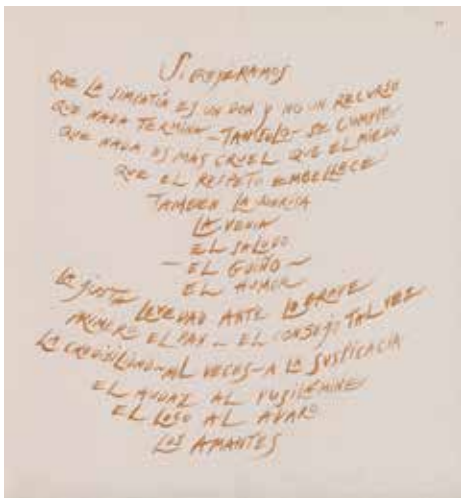 SUPIÉRAMOS
QUE LA SIMPATÍA ES UN DON Y NO UN RECURSO
QUE NADA TERMINA - TAN SOLO - SE CUMPLE
QUE NADA ES MÁS CRUEL QUE EL MIEDO
QUE EL RESPETO EMBELLECE
TAMBIÉN LA SONRISA
LA VENIA
EL SALUDO
- EL GUIÑO -
EL HUMOR
LA JUSTA LEVEDAD ANTE LO GRAVE
PRIMERO EL PAN - EL CONSEJO TAL VEZ
LA CREDULIDAD AL VECES - A LA SUSPICACIA
EL AUDAZ AL PUSILÁNIME
EL LOCO AL AVARO
LOS AMANTES